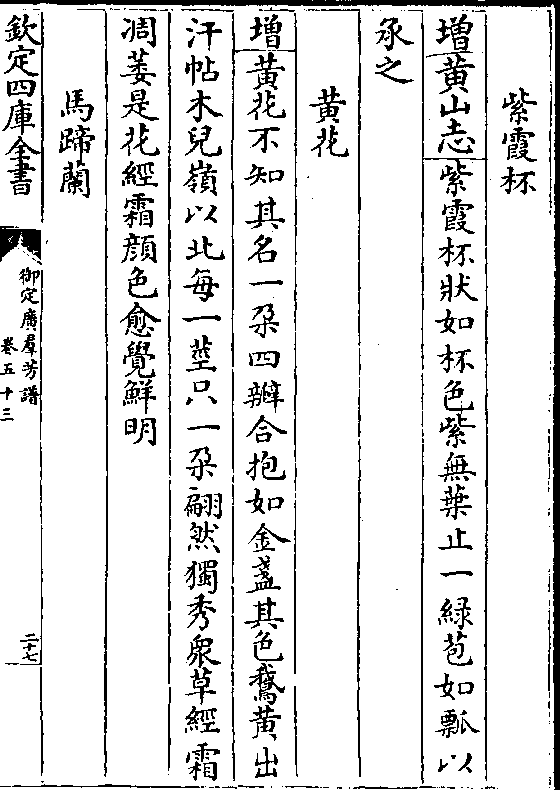 紫霞杯
增黄山志紫霞杯狀如杯色紫無葉止一緑苞如瓢以
承之
黄花
增黄花不知其名一朶四瓣合抱如金盞其色鵞黄出
汗帖木兒嶺以北每一莖只一朶翩然獨秀衆草經霜
凋萎是花經霜顔色愈覺鮮明
馬蹄蘭
欽定四庫全書
御定廣羣芳譜
卷五十三
二十七